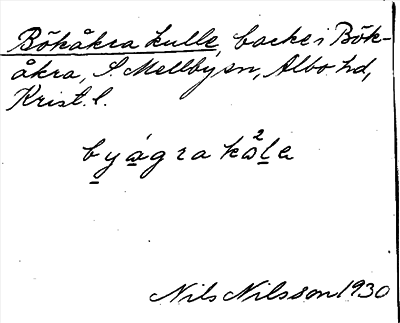 Bökåkra kulle, backe i Bök-
åkra, S. Mellby sn, Albo hd,
Krist. l.
Nils Nilsson 1930